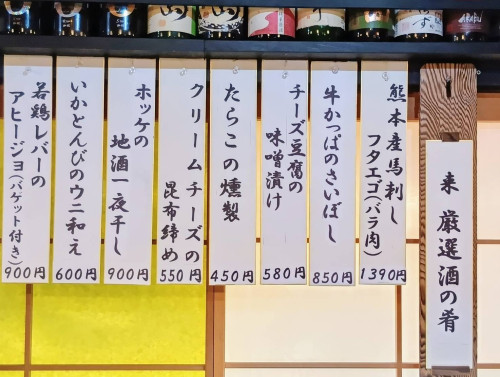 耒 厳選酒の肴
熊本産馬刺し
フタエゴ(バラ肉)
1390円
牛かっぱのさいぼし
850円
チーズ豆腐の
味噌漬け
580円
たらこの燻製
450円
クリームチーズの
昆布締め
550円
ホッケの
地酒一夜干し
900円
いかとんびのウニ和え
600円
若鶏レバーの
アヒージョ(バゲット付き)
900円